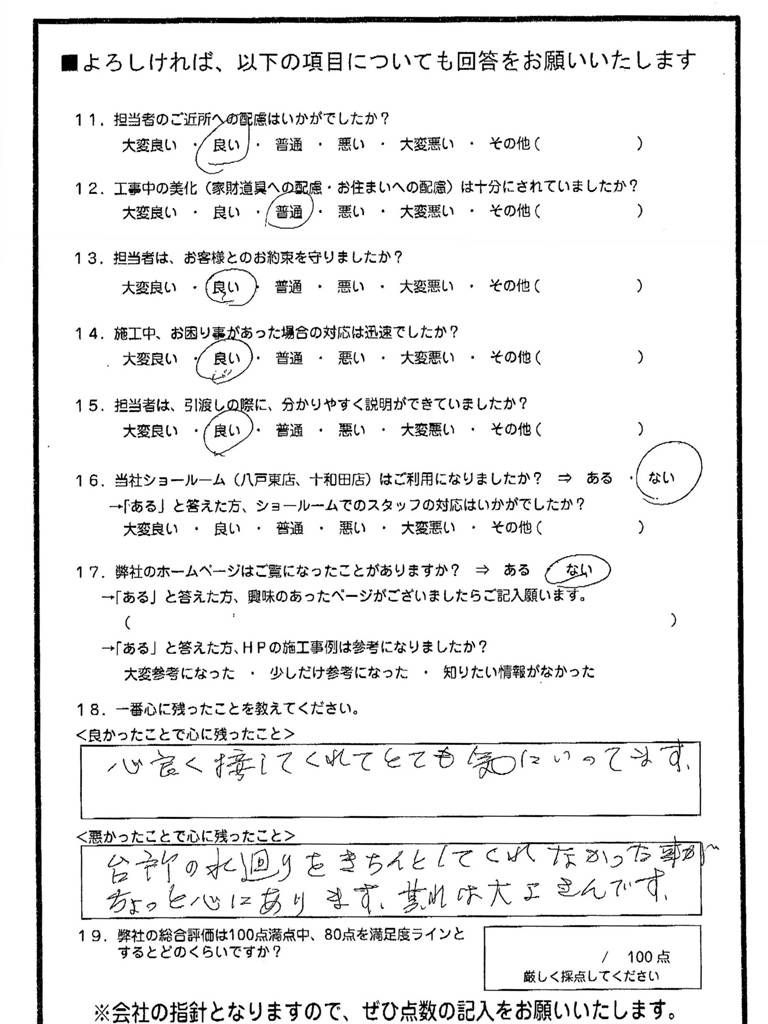 ■よろしければ、以下の項目についても回答をお願いいたします
11．担当者のご近所への配慮はいかがでしたか？
大変良い ・ 良い ・ 普通 ・ 悪い ・ 大変悪い ・ その他（ ）
12．工事中の美化（家財道具への配慮・お住まいへの配慮）は十分にされていましたか？
大変良い ・ 良い ・ 普通 ・ 悪い ・ 大変悪い ・ その他（ ）
13．担当者は、お客様とのお約束を守りましたか？
大変良い ・ 良い ・ 普通 ・ 悪い ・ 大変悪い ・ その他（ ）
14．施工中、お困り事があった場合の対応は迅速でしたか？
大変良い ・ 良い ・ 普通 ・ 悪い ・ 大変悪い ・ その他（ ）
15．担当者は、引渡しの際に、分かりやすく説明ができていましたか？
大変良い ・ 良い ・ 普通 ・ 悪い ・ 大変悪い ・ その他（ ）
16．当社ショールーム（八戸東店、十和田店）はご利用になりましたか？ ⇒ ある ・ ない
→「ある」と答えた方、ショールームでのスタッフの対応はいかがでしたか？
大変良い ・ 良い ・ 普通 ・ 悪い ・ 大変悪い ・ その他（ ）
17．弊社のホームページはご覧になったことがありますか？ ⇒ ある ない
→「ある」と答えた方、興味のあったページがございましたらご記入願います。
（ ）
→「ある」と答えた方、HPの施工事例は参考になりましたか？
大変参考になった ・ 少しだけ参考になった ・ 知りたい情報がなかった
18．一番心に残ったことを教えてください。
<良かったことで心に残ったこと>
心良く接してくれてとても気にいってます。
<悪かったことで心に残ったこと>
台所の水廻りをきちんとしてくれなかった事が
ちょっと心にあります。其れは大工さんです。
19．弊社の総合評価は100点満点中、80点を満足度ラインと
するとどのくらいですか？
/ 100点
厳しく採点してください
※会社の指針となりますので、ぜひ点数の記入をお願いいたします。